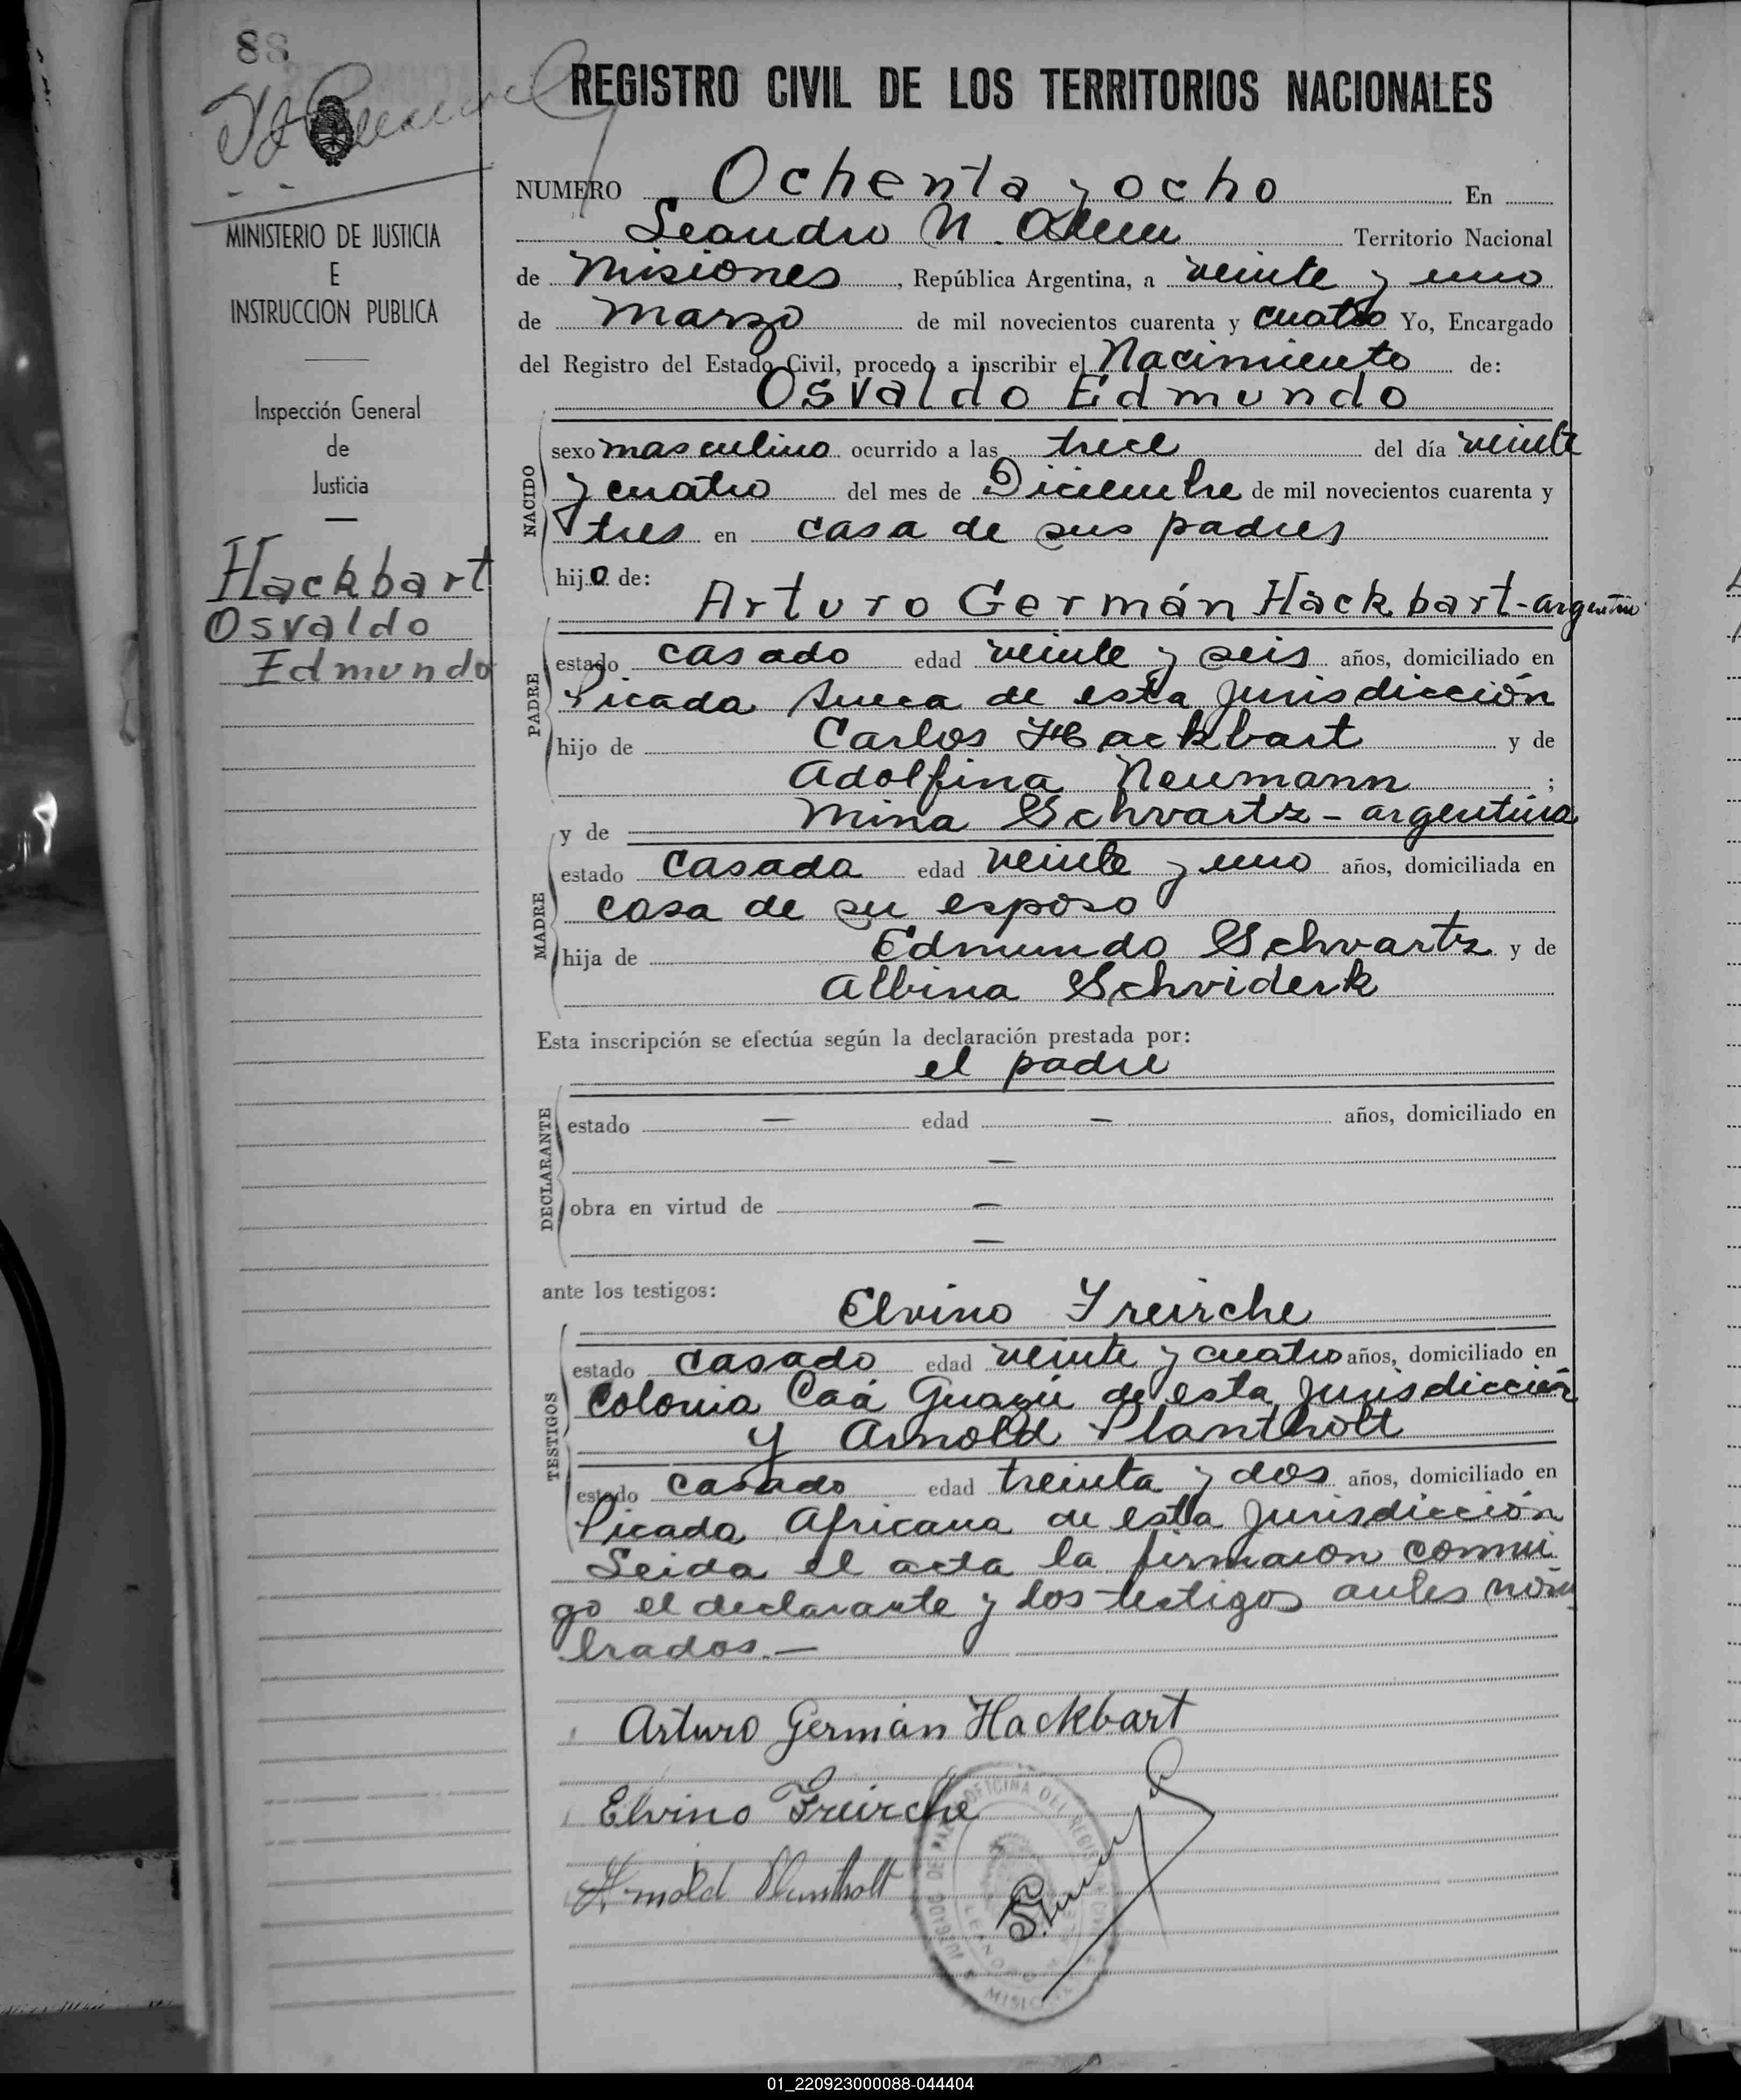 88
REGISTRO CIVIL DE LOS TERRITORIOS NACIONALES
MINISTERIO DE JUSTICIA
E
INSTRUCCION PUBLICA
Inspección General
de
Justicia
Hackbart
Osvaldo
Edmundo
NUMERO Ochenta y ocho En
Leandro N. Alem Territorio Nacional
de Misiones, República Argentina, a veinte y uno
de Marzo de mil novecientos cuarenta y cuatro Yo, Encargado
del Registro del Estado Civil, procedo a inscribir el Nacimiento de:
Osvaldo Edmundo
NACIDO
sexo masculino ocurrido a las trece del día veinte
y cuatro del mes de Diciembre de mil novecientos cuarenta y
tres en casa de sus padres
hijo de:
Arturo Germán Hackbart - argentino
PADRE
estado casado edad veinte y seis años, domiciliado en
Picada Sueca de esta Jurisdicción
hijo de Carlos Hackbart y de
Adolfina Neumann ;
y de Mina Schvartz - argentina
MADRE
estado casada edad veinte y uno años, domiciliada en
casa de su esposo
hija de Edmundo Schvartz y de
Albina Schviderk
Esta inscripción se efectúa según la declaración prestada por:
el padre
DECLARANTE
estado — edad — años, domiciliado en
—
obra en virtud de —
—
ante los testigos:
Elvino Freirche
TESTIGOS
estado casado edad veinte y cuatro años, domiciliado en
Colonia Caá Guazú de esta Jurisdicción
y Arnold Plantholt
estado casado edad treinta y dos años, domiciliado en
Picada Africana de esta Jurisdicción
Leida el acta la firmaron conmi
go el declarante y los testigos antes nom
brados.—
Arturo Germán Hackbart
Elvino Freirche
Arnold Plantholt
JUZGADO DE PAZ OFICINA DEL REGISTRO CIVIL
MISIONES
01_220923000088-044404